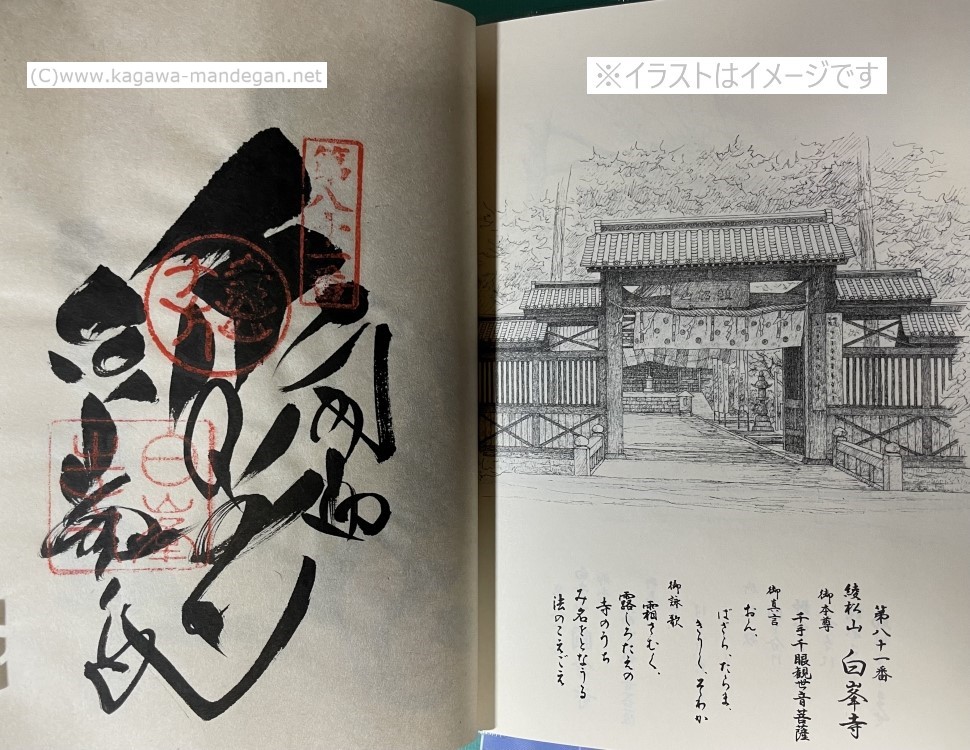 (C)www.kagawa-mandegan.net
※イラストはイメージです
第八十一番
白峯寺
第八十一番
綾松山 白峯寺
御本尊
千手千眼観世音菩薩
御真言
おん、
ばざら、たらま、
きりーく、そわか
御詠歌
霜さむく、
露しろたえの
寺のうち
み名をとなうる
法のこえごえ